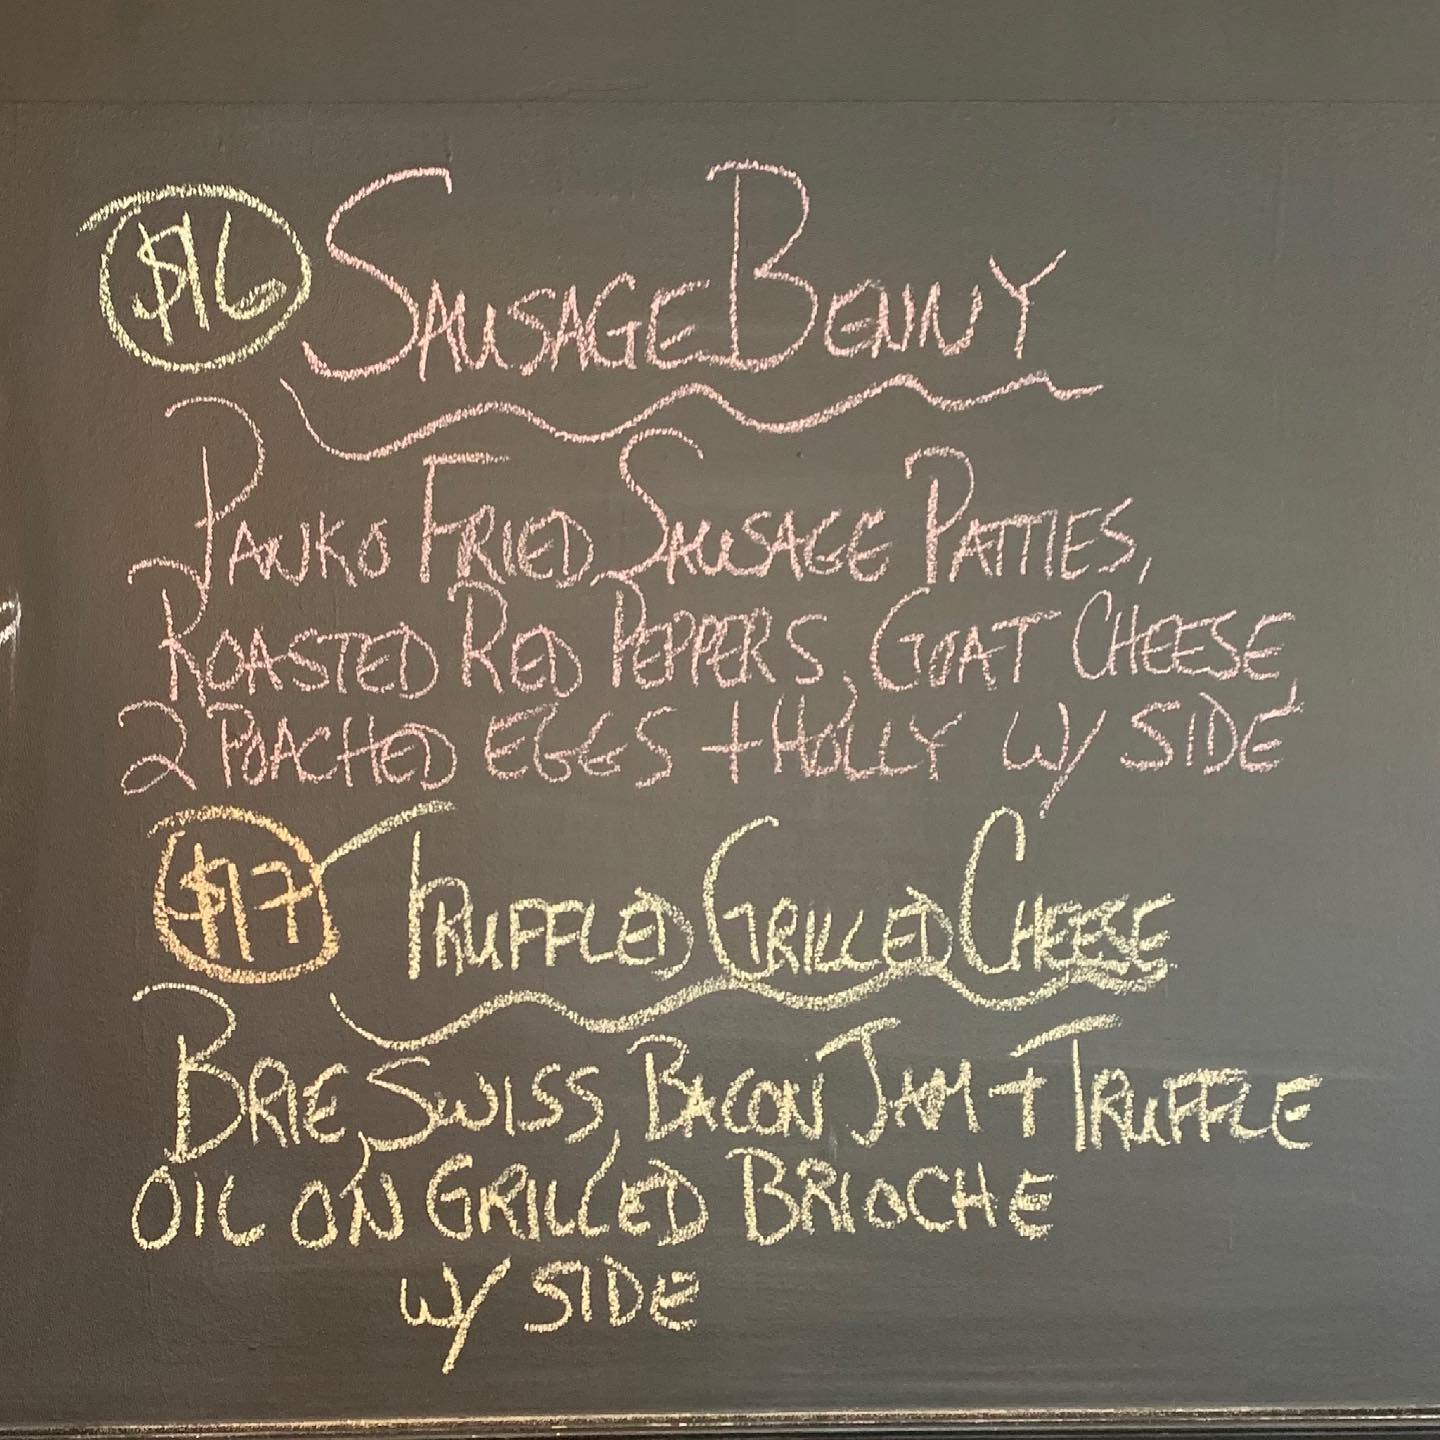 $16 SAUSAGE BENNY
PANKO FRIED SAUSAGE PATTIES,
ROASTED RED PEPPERS, GOAT CHEESE,
2 POACHED EGGS + HOLLY W/ SIDE
$17 TRUFFLED GRILLED CHEESE
BRIE, SWISS, BACON JAM + TRUFFLE
OIL ON GRILLED BRIOCHE
W/ SIDE